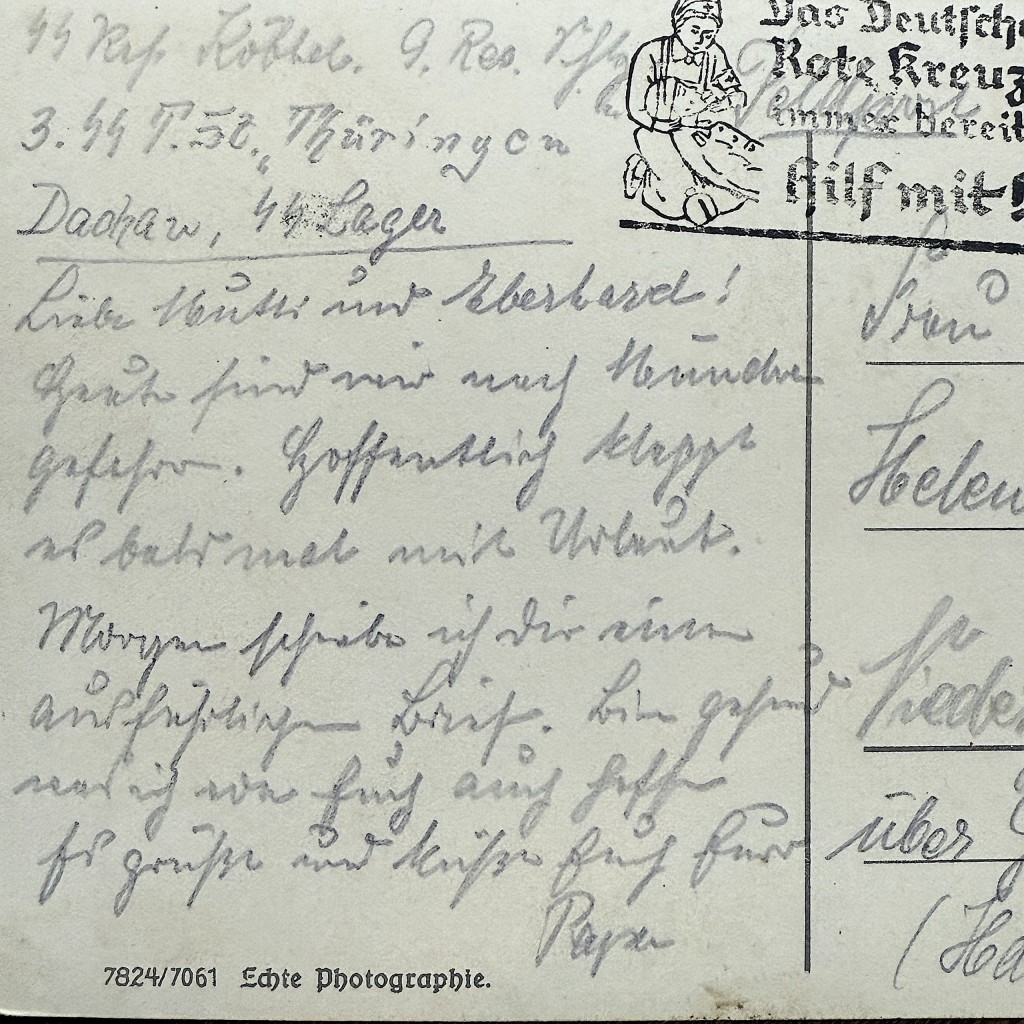 Das Deutsche
Rote Kreuz
immer bereit
Hilf mit!
Feldpost
3. SS T. St. „Thüringen
Dachau, SS Lager
Liebe Mutti und Eberhard!
Heute sind wir nach München
gefahren. Hoffentlich klappt
es bald mal mit Urlaub.
Morgen schreibe ich Dir einen
ausführlichen Brief. Bin gesund
was ich von Euch auch hoffe
Es grüßt und küßt Euch Euer
Papa
Frau
Helen
Nieder
über
(Ha
7824/7061 Echte Photographie.